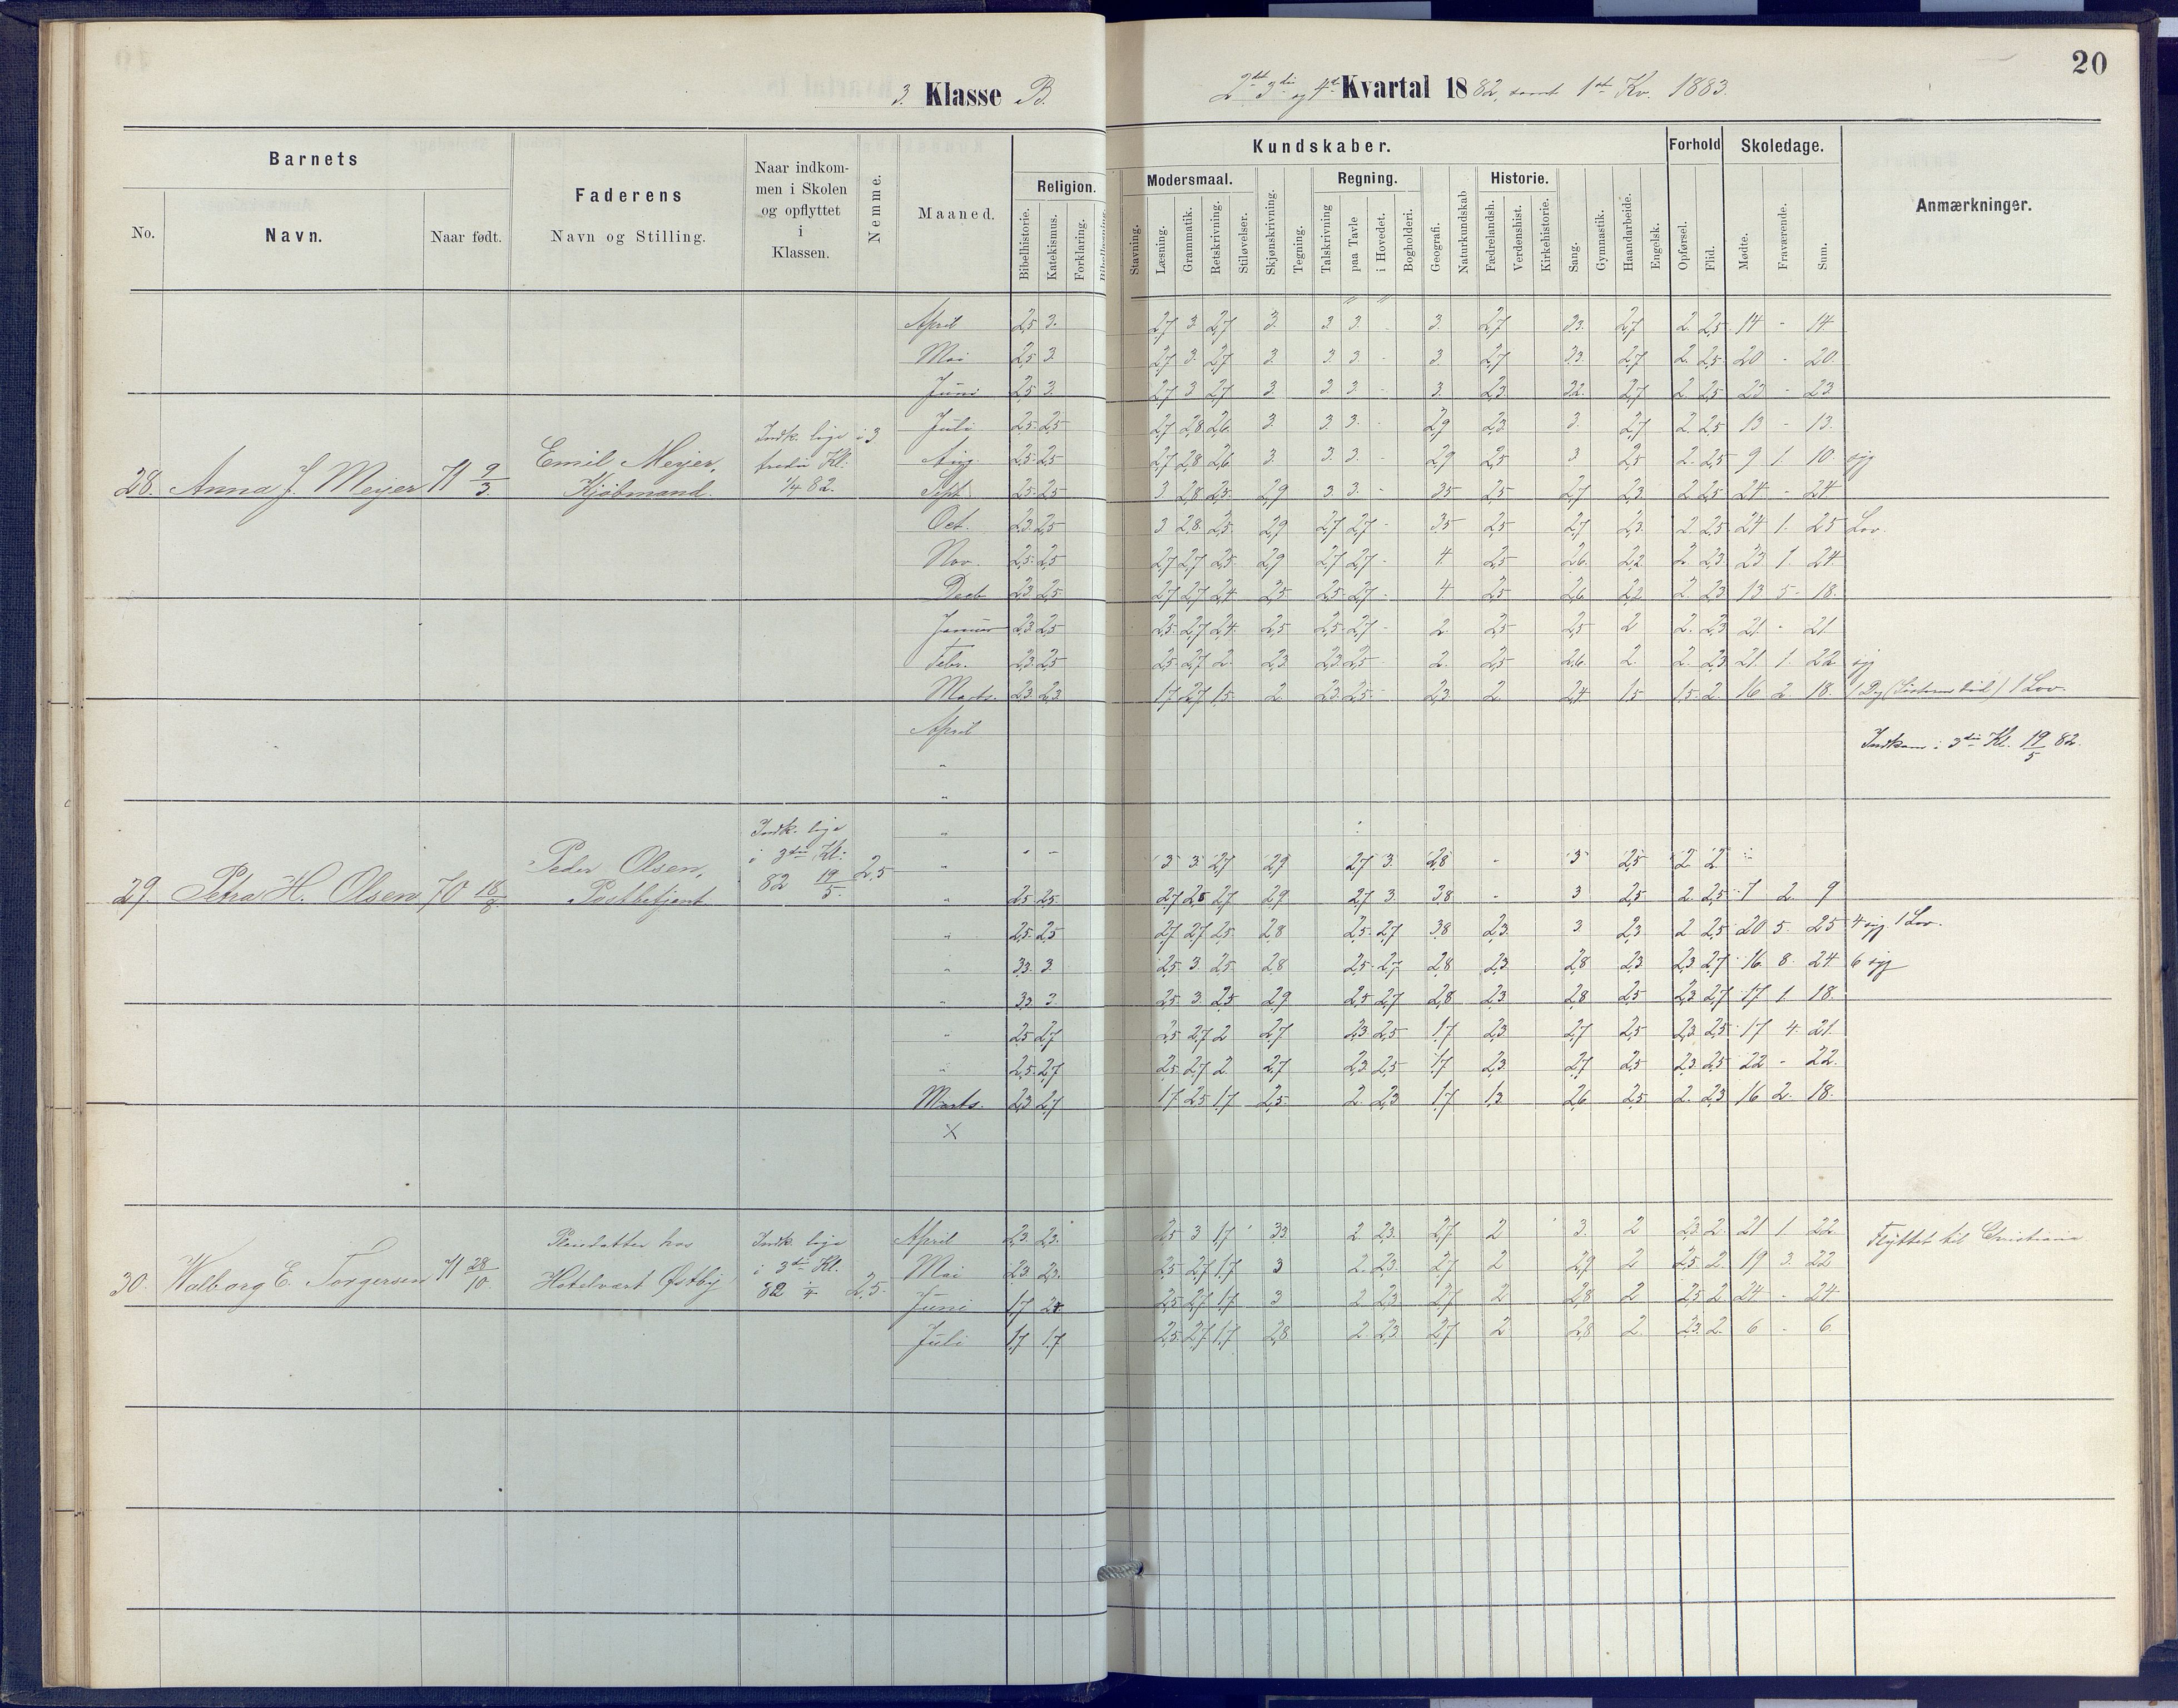 20
3. Klasse B.
2det 3die og 4de Kvartal 1882, samt 1ste Kv. 1883.
Barnets
No.
Navn.
Naar født.
Faderens
Navn og Stilling.
Naar indkom-
men i Skolen
og opflyttet
i
Klassen.
Nemme.
Maaned.
Kundskaber.
Religion.
Bibelhistorie.
Katekismus.
Forklaring.
Bibellæsning.
Modersmaal.
Stavning.
Læsning.
Grammatik.
Retskrivning.
Stiløvelser.
Skjønskrivning.
Tegning.
Regning.
Talskrivning
paa Tavle
i Hovedet.
Bogholderi.
Geografi.
Naturkundskab
Historie.
Fædrelandsh.
Verdenshist.
Kirkehistorie.
Sang.
Gymnastik.
Haandarbeide.
Engelsk.
Forhold
Opførsel.
Flid.
Skoledage.
Mødte.
Fraværende.
Sum.
Anmærkninger.
28. Anna J. Meyer 71 9/3. Emil Meyer, Kjøbmand. Indk. lige i tredie Kl: 1/4 82. 3
April 2,5 3. 2,7 3. 2,7 3. 3. 3. - 3. 2,7 3,3. 2,7 2. 2,5 14 - 14.
Mai 2,5 3. 2,7 3. 2,7 3. 3. 3. - 3. 2,7 3,3. 2,7 2. 2,5 20 - 20.
Juni 2,5 3. 2,7 3 2,7 3. 3. 3. - 3. 2,3. 3,2. 2,7 2 2,5 23. - 23.
Juli 2,5 2,5 2,7 2,8 2,6. 3. 3. 3. - 2,9 2,3. 3. 2,7 2. 2,5 13 - 13.
Aug. 2,5 2,5 2,7 2,8 2,6. 3. 3. 3. - 2,9 2,5 3 2,5 2. 2,5 9 1. 10 syg
Sept. 2,5 2,5 3. 2,8 2,5. 2,9 3. 3. - 3,5 2,5 2,7 2,3. 2 2,5 24 - 24
Oct. 2,3. 2,5 3 2,8. 2,5. 2,9 2,7 2,7 - 3,5 2,5 2,7 2,3. 2. 2,5 24 1. 25 Lov.
Nov. 2,5 2,5 2,7 2,7 2,5. 2,9 2,7 2,7 - 4. 2,5 2,6. 2,2. 2. 2,3. 23 1. 24.
Decb 2,3. 2,5 2,7 2,7 2,4 2,5 2,5 2,7 - 4. 2,5 2,6 2,2 2. 2,3 13 5. 18.
Januar 2,3 2,5 2,5. 2,7 2,4. 2,5 2,5 2,7 - 2. 2,5 2,5 2 2. 2,3 21. - 21.
Febr. 2,3. 2,5 2,5 2,7 2. 2,3. 2,3. 2,5 - 2. 2,5 2,6. 2. 2. 2,3 21. 1. 22 syg
Marts. 2,3. 2,3 1,7 2,7 1,5. 2. 2,3. 2,5. - 2,3. 2. 2,4 1,5 1,5. 2. 16 2. 18. 1 Dg (Søsters bød) 1 Lov.
29. Petra H. Olsen 70 18/8. Peder Olsen, Postbetjent. Indk. lige i 3die Kl: 82 19/5. 2,5
April
Indkom i 3die Kl. 19/5 82.
" - - 3 3. 2,7 2,9 2,7 3. 2,8 - 3 2,5 2 2
" 2,5 2,5. 2,7 2,8 2,7 2,9 2,7 3. 3,8 - 3 2,5 2. 2,5 7 2. 9
" 2,5. 2,5 2,7 2,7 2,5. 2,8 2,5. 2,7 3,8 2,3. 3. 2,3 2 2,5 20 5. 25 4 syg. 1 Lov.
" 3,3. 3. 2,5 3. 2,5 2,8 2,5. 2,7 2,8 2,3 2,8 2,3 2,3 2,7 16. 8. 24 6 syg
" 3,3. 3. 2,5 3. 2,5 2,9 2,5 2,7 2,8 2,3. 2,8 2,5 2,3 2,7 17 1. 18.
" 2,5 2,7 2,5 2,7 2 2,7 2,3. 2,5 1,7 2,3 2,7 2,5 2,3 2,5 17 4. 21.
" 2,5. 2,7 2,5. 2,7 2. 2,7 2,3. 2,5 1,7 2,3. 2,7 2,5 2,3. 2,5 22 - 22.
Marts. 2,3 2,7 1,7 2,5 1,7 2,5. 2. 2,3 1,7 1,3. 2,6 2,5 2. 2,3 16 2. 18.
X
30. Walborg E. Torgersen 71 28/10. Pleiedatter hos Hotelvært Østby Indk. lige i 3die Kl. 82 2,5.
April 2,3. 2,3. 2,5 3 1,7 3,3 2. 2,3. 2,7. 2 3. 2 2,3. 2. 21 1. 22. Flyttet til Christiania
Mai 2,3. 2,3. 2,5 2,7 1,7. 3 2. 2,3. 2,7 2 2,9 2 2,5 2. 19 3. 22
Juni 1,7 2,5 2,7 1,7. 3 2 2,3 2,7 2 2,8 2 2,5 2. 24 - 24
Juli 1,7 1,7 2,5. 2,7 1,7 2,8 2. 2,3. 2,7 2 2,8 2. 2,3. 2. 6 - 6.